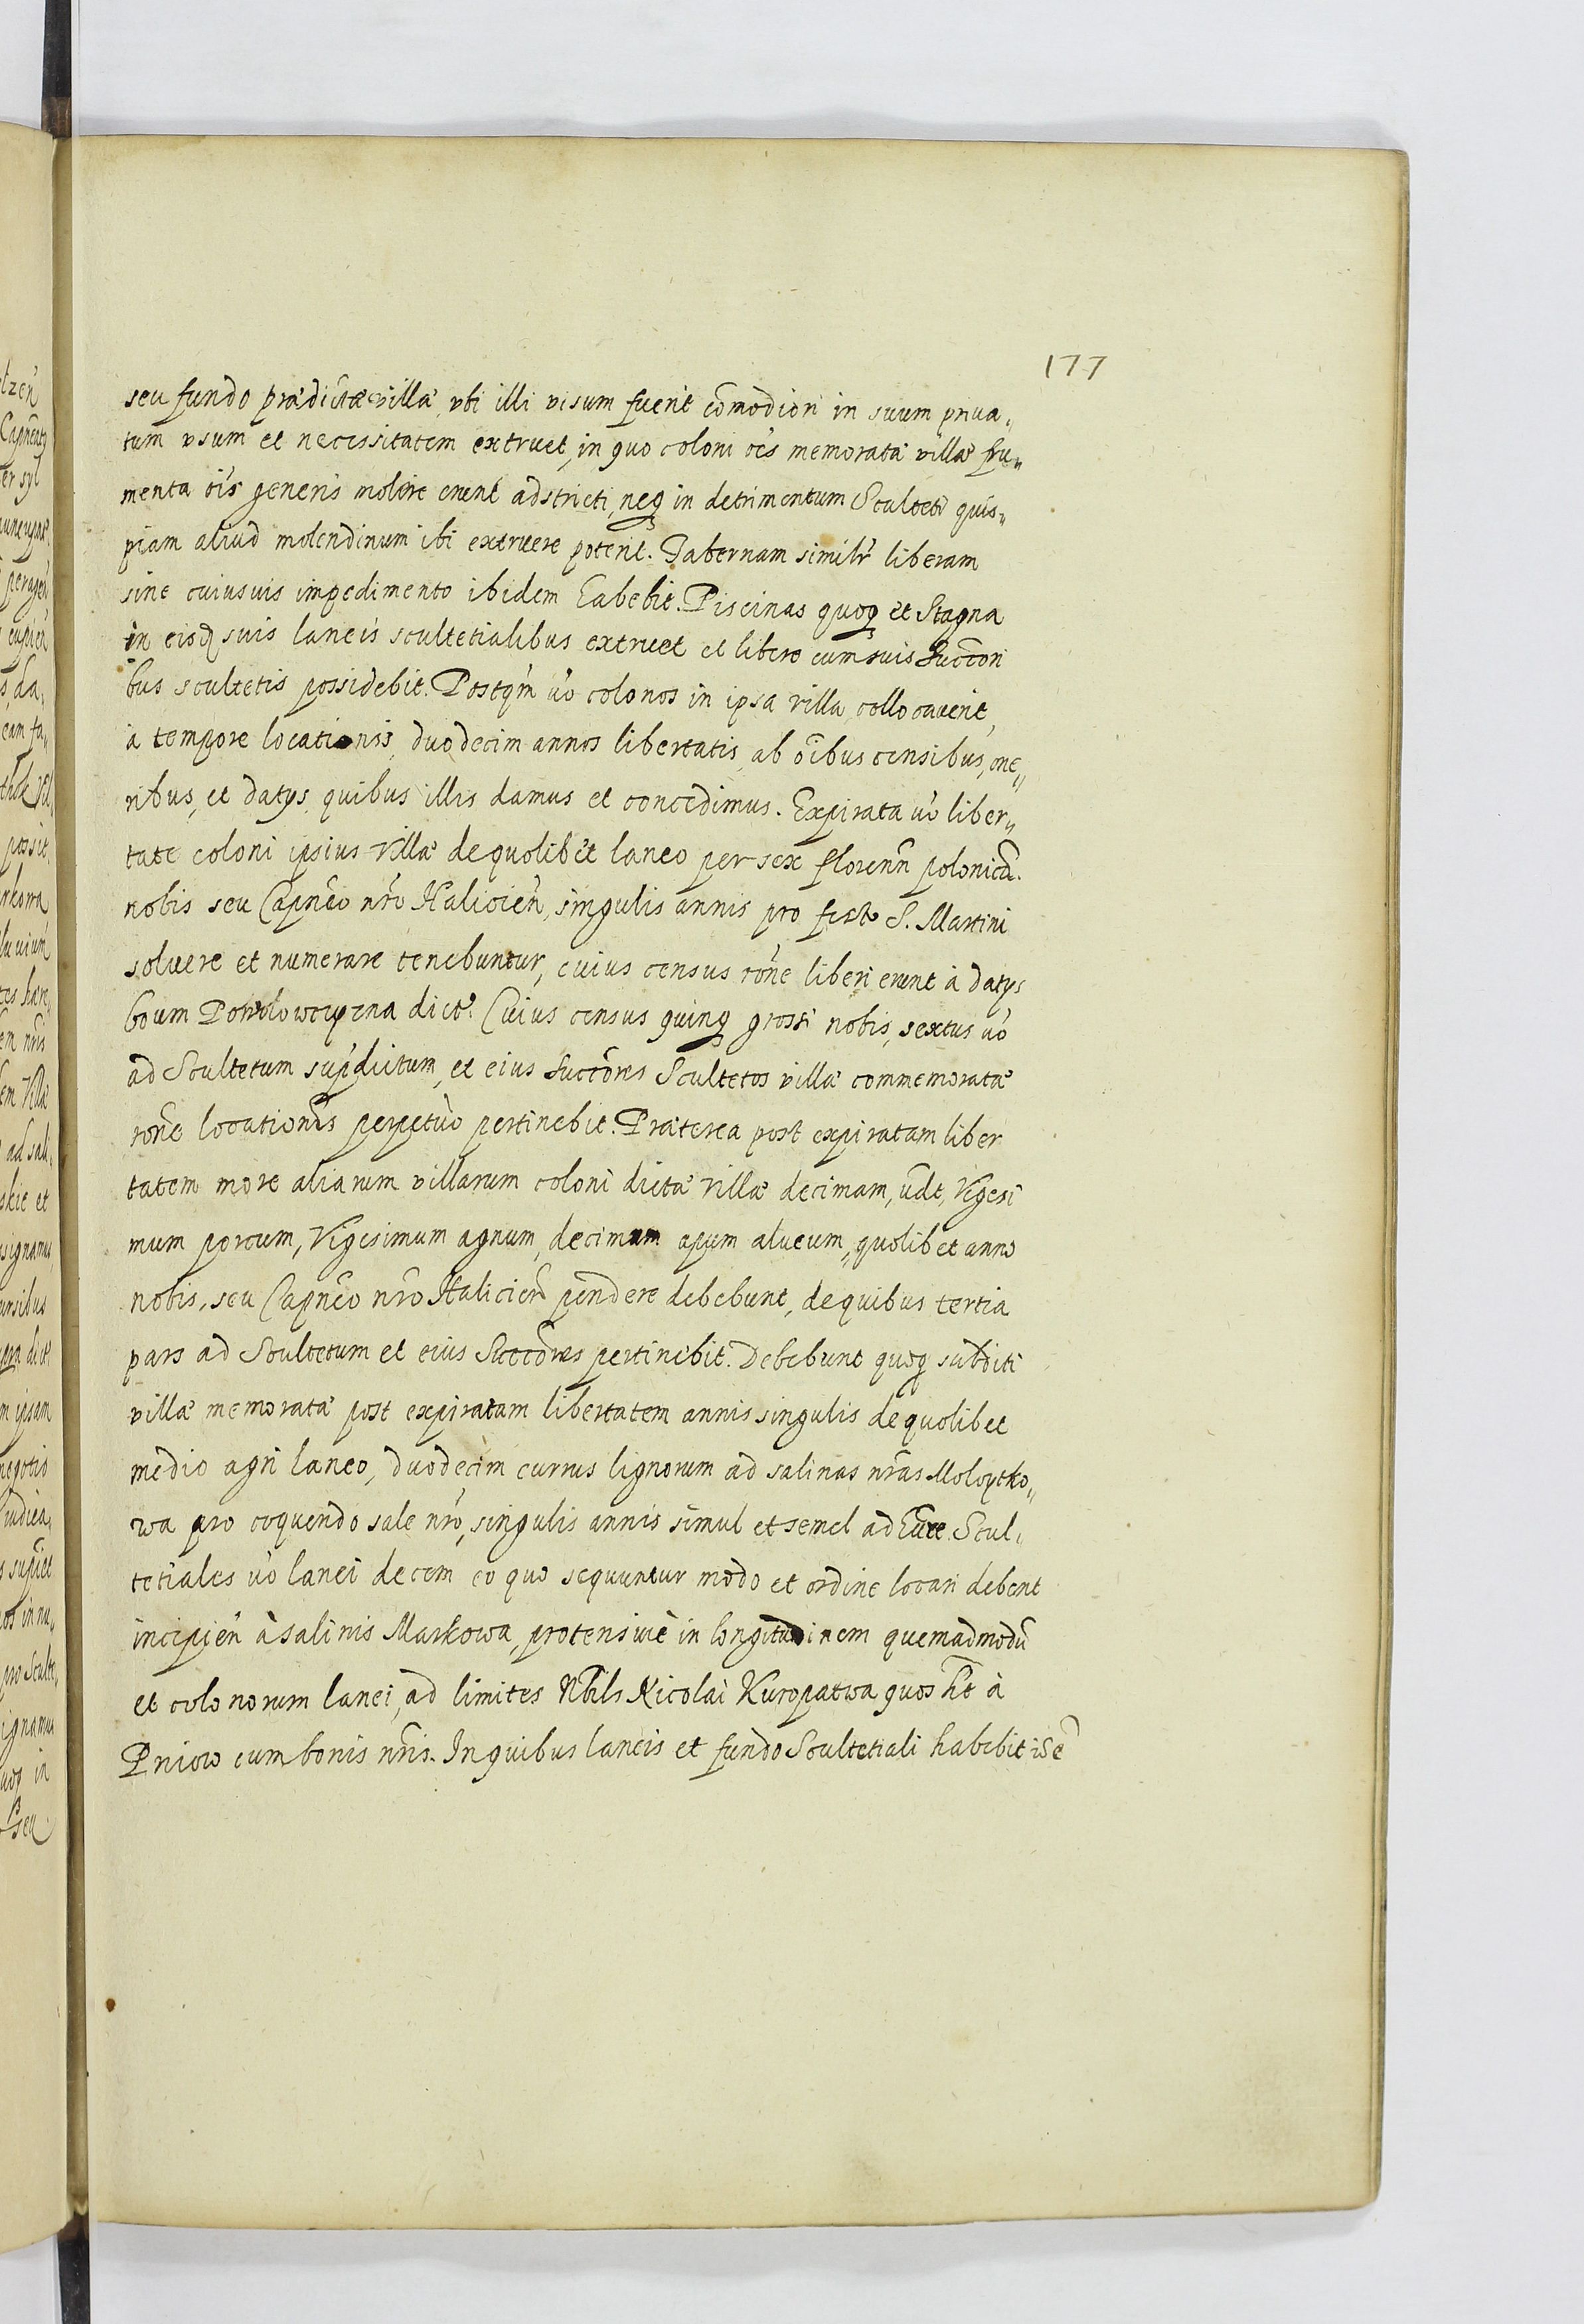 177
seu fundo prædictæ villæ, vbi illi visum fuerit com̃odiori in suum priua„
tum vsum et necessitatem extruet, in quo coloni oẽs memoratæ villæ fru„
menta oĩs generis molere erunt adstricti, neq̃ in detrimentum Sculteti quis„
piam aliud molendinum ibi extruere poterit. Tabernam similr̃ liberam
sine cuiusuis impedimento ibidem habebit. Piscinas quoq̃ et Stagna
in eisd̃ suis laneis scultetialibus extruet et libere cum suis Succori
bus scultetis possidebit. Postq̃m võ colonos in ipsa villa collocauerit,
à tempore locationis, duodecim annos libertatis, ab oĩbus censibus, one„
ribus, et datys quibus illis damus et concedimus. Expirata võ liber„
tate coloni ipsius villæ de quolibet laneo per sex floreñ polonicã.
nobis seu Capñeo nrõ Halicieñ, singulis annis pro festo S. Martini
soluere et numerare tenebuntur, cuius census rõne liberi erunt à datys
boum Powolowczyzna dict. Cuius census quinq̃ grossi nobis, sextus võ
ad Scultetum sup̃dictum, et eius Succõres Scultetos villæ commemoratæ
rõne locationis perpetuò pertinebit. Præterea post expiratam liber
tatem more aliarum villarum coloni dictæ villæ decimam, vdt, Vigesi
mum porcum, Vigesimum agnum, decimum apum alueum, quolibet anno
nobis, seu Capñeo nrõ Halicieñ pendere debebunt, de quibus tertia
pars ad Scultetum et eius Succõres pertinebit. Debebunt quoq̃ subditi
villæ memoratæ post expiratam libertatem annis singulis de quolibet
medio agri laneo, duodecim currus lignorum ad salinas nrãs Molotko„
wa pro coquendo sale nrõ, singulis annis simul et semel adhũre. Scul„
tetiales võ lanei decem eo quo sequuntur modo et ordine locari debent
incipieñ à salinis Markowa, protensiuè in longitudinem quemadmodũ
et colonorum lanei, ad limites Nbils Nicolai Kuropatwa quos ht à
Pniow cum bonis nrĩs. In quibus laneis et fundo Scultetiali habebit